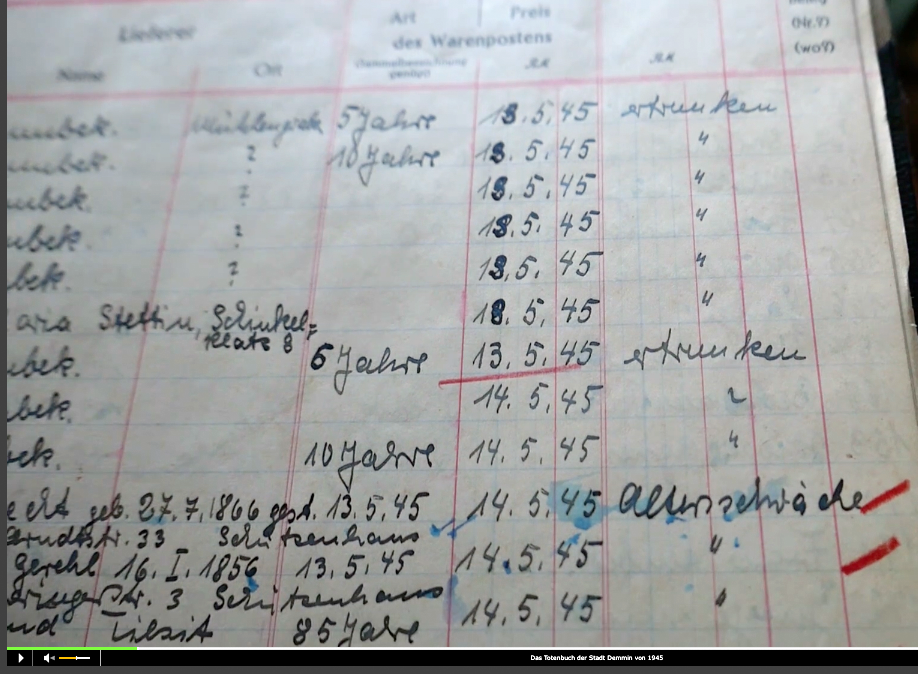 Lieferer Art Preis
des Warenpostens (Nr.?)
Name Ort (Sammelbezeichnung genügt) RM RM (wo?)
unbek. 5 Jahre 13.5.45 ertrunken
unbek. ? 10 Jahre 13.5.45 "
unbek. ? 13.5.45 "
ubek. ? 13.5.45 "
bek. ? 13.5.45 "
aria Stettin, Schinkel= 13.5.45 "
platz 8
ubek. 6 Jahre 13.5.45 ertrunken
bek. 14.5.45 "
ek. 10 Jahre 14.5.45 "
geb. 27.7.1866 gest. 13.5.45 14.5.45 Altersschwäche
rndtstr. 33 Schützenhaus
16.I.1856 13.5.45 14.5.45 "
Str. 3 Schützenhaus
nd Tilsit 85 Jahre 14.5.45 "
Das Totenbuch der Stadt Demmin von 1945